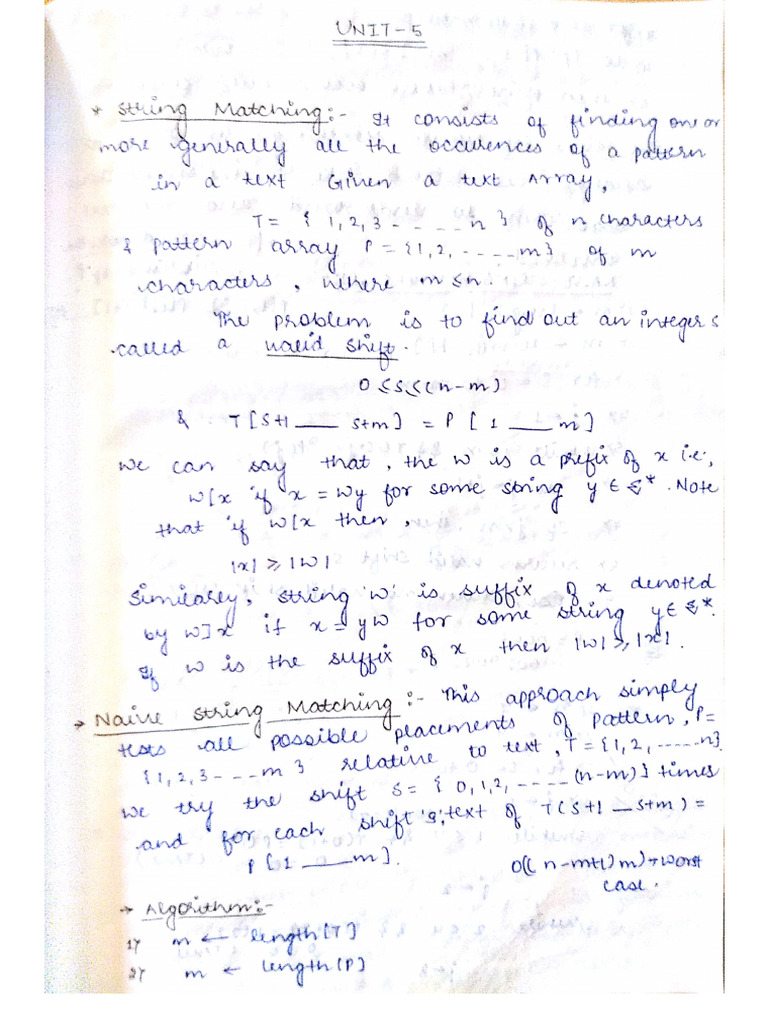 UNIT-5
* String Matching:- It consists of finding one or
more generally all the occurences of a pattern
in a text Given a text Array,
T= { 1, 2, 3 - - - - - n } of n characters
& pattern array P = {1, 2, - - - - m} of m
characters, where m ≤ n.
The problem is to find out an integer s
called a valid shift.
0 ≤ s ≤ (n-m)
& T [S+1 ___ s+m] = P [ 1 ___ m]
we can say that, the w is a prefix of x i.e;
w[x if x = wy for some string y ∈ Σ*. Note
that if w[x then,
|x| ≥ |w|
Similarly, string 'w' is suffix of x denoted
by w]x if x = yw for some string y ∈ Σ*.
If w is the suffix of x then |w| ≥ |x|.
→ Naive String Matching:- This approach simply
tests all possible placements of pattern, P=
{1, 2, 3 - - - m } relative to text, T = {1, 2, - - - - - n}
we try the shift S= { 0, 1, 2, - - - - - (n-m)} times
and for each shift 's', text of T(S+1 __ s+m) =
P [1 ___ m].
O((n-m+1) m) → worst
case.
→ Algorithm:-
1) n ← length[T]
2) m ← length[P]